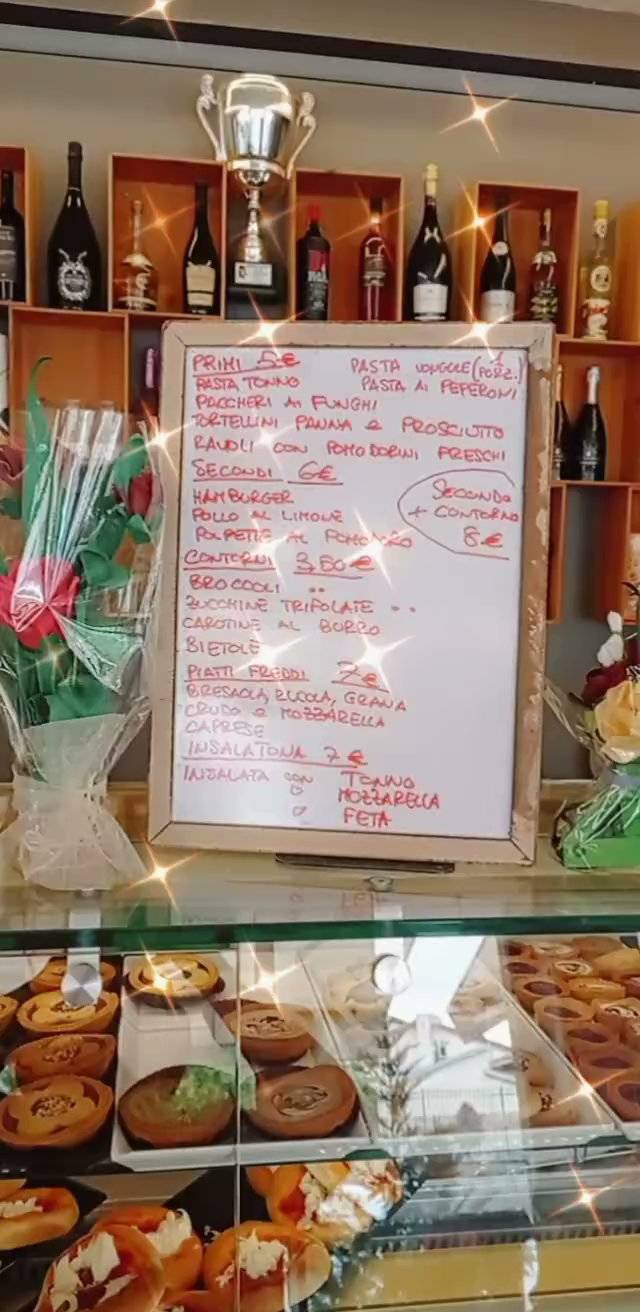 PRIMI 5€
PASTA VONGOLE (1 PORZ.)
PASTA TONNO
PASTA AI PEPERONI
PACCHERI AI FUNGHI
TORTELLINI PANNA e PROSCIUTTO
RAVIOLI CON POMODORINI FRESCHI
SECONDI 6€
HAMBURGER
POLLO AL LIMONE
POLPETTE AL POMODORO
SECONDO
+ CONTORNO
8€
CONTORNI 3,50€
BROCCOLI
ZUCCHINE TRIFOLATE
CAROTINE AL BURRO
BIETOLE
PIATTI FREDDI 7€
BRESAOLA, RUCOLA, GRANA
CRUDO e MOZZARELLA
CAPRESE
INSALATONA 7€
INSALATA CON TONNO
MOZZARELLA
FETA